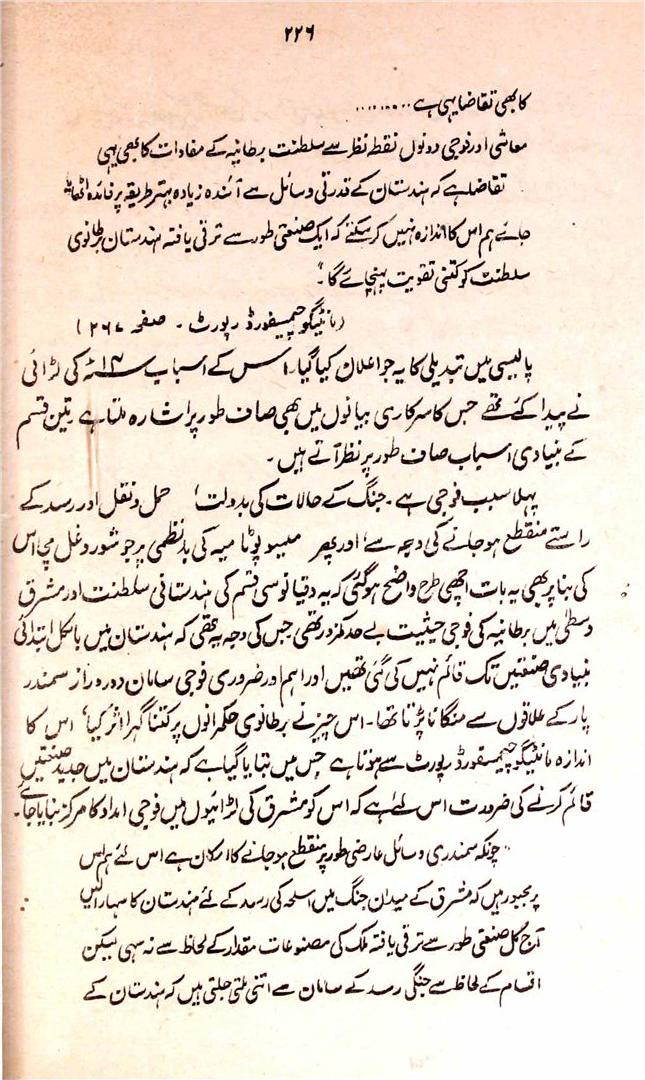 ۲۲۶
کا بھی تقاضا یہی ہے ..........
معاشی اور فوجی دونوں نقطہ نظر سے سلطنت برطانیہ کے مفادات کا بھی یہی
تقاضا ہے کہ ہندستان کے قدرتی وسائل سے آئندہ زیادہ بہتر طریقہ پر فائدہ اٹھایا
جائے ہم اس کا اندازہ نہیں کر سکتے کہ ایک صنعتی طور سے ترقی یافتہ ہندستان برطانوی
سلطنت کو کتنی تقویت پہنچائے گا۔"
(مانٹیگو چیمسفورڈ رپورٹ ۔ صفحہ ۲۶۷)
پالیسی میں تبدیلی کا یہ جو اعلان کیا گیا۔ اس کے اسباب ۱۴ء کی لڑائی
نے پیدا کئے تھے جس کا سرکاری بیانوں میں بھی صاف طور پر اشارہ ملتا ہے تین قسم
کے بنیادی اسباب صاف طور پر نظر آتے ہیں۔
پہلا سبب فوجی ہے۔ جنگ کے حالات کی بدولت، حمل و نقل اور رسد کے
راستے منقطع ہو جانے کی وجہ سے، اور پھر میسوپوٹامیہ کی بدنظمی پر جو شور و غل مچا اس
کی بنا پر بھی یہ بات اچھی طرح واضح ہو گئی کہ یہ دقیانوسی قسم کی ہندستانی سلطنت اور مشرق
وسطیٰ میں برطانیہ کی فوجی حیثیت بے حد کمزور تھی جس کی وجہ یہ تھی کہ ہندستان میں بالکل ابتدائی
بنیادی صنعتیں تک قائم نہیں کی گئی تھیں اور اہم اور ضروری فوجی سامان دور دراز سمندر
پار کے علاقوں سے منگانا پڑتا تھا۔ اس چیز نے برطانوی حکمرانوں پر کتنا گہرا اثر کیا، اس کا
اندازہ مانٹیگو چیمسفورڈ رپورٹ سے ہوتا ہے جس میں بتایا گیا ہے کہ ہندستان میں جدید صنعتیں
قائم کرنے کی ضرورت اس لئے ہے کہ اس کو مشرق کی لڑائیوں میں فوجی امداد کا مرکز بنایا جائے۔
"چونکہ سمندری وسائل عارضی طور پر منقطع ہو جانے کا امکان ہے اس لئے ہم اس
پر مجبور ہیں کہ مشرق کے میدان جنگ میں اسلحہ کی رسد کے لئے ہندستان کا سہارا لیں
آج کل صنعتی طور سے ترقی یافتہ ملک کی مصنوعات مقدار کے لحاظ سے نہ سہی لیکن
اقسام کے لحاظ سے جنگی رسد کے سامان سے اتنی ملتی جلتی ہیں کہ ہندستان کے